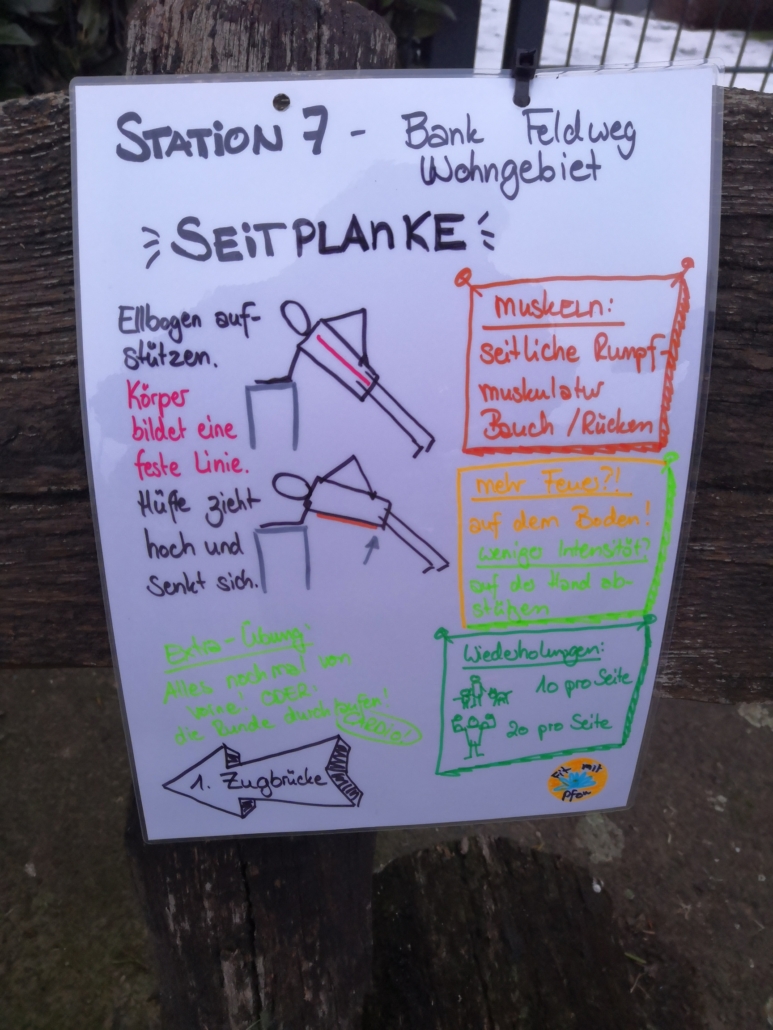 STATION 7 - Bank Feldweg
Wohngebiet
SEITPLANKE
Ellbogen auf-
stützen.
Körper
bildet eine
feste Linie.
Hüfte zieht
hoch und
senkt sich.
Muskeln:
seitliche Rumpf-
muskulatur
Bauch / Rücken
mehr Feuer?!
auf dem Boden!
weniger Intensität?
auf der Hand ab-
stützen
Extra-Übung:
Alles nochmal von
vorne! ODER:
die Runde durch laufen!
Wiederholungen:
10 pro Seite
20 pro Seite
1. Zugbrücke
Fit mit
Pfau